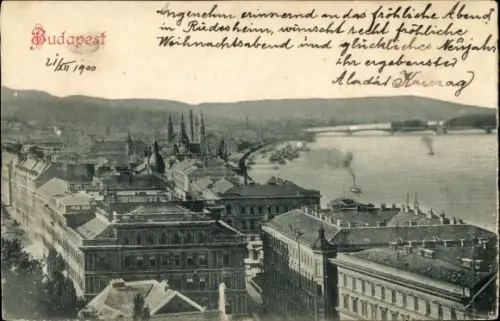 Angenehm erinnernd an das fröhliche Abend,
in Rüdesheim, wünscht recht fröhliche
Weihnachtsabend und glückliches Neujahr
Ihr ergebenster
Aladár
Budapest
21/XII 1900